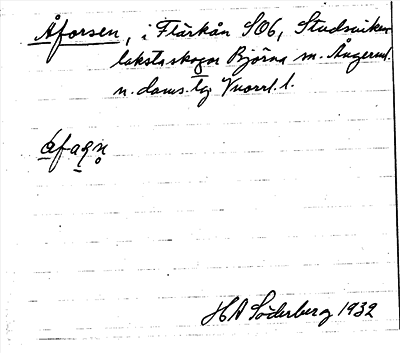 Åforsen, i Flärkån S06, Studsviken
lakstaskogar Björna sn. Ångerml.
n. doms. tg Vnorrl. l.
åfaṣn̥
HA Söderberg 1932